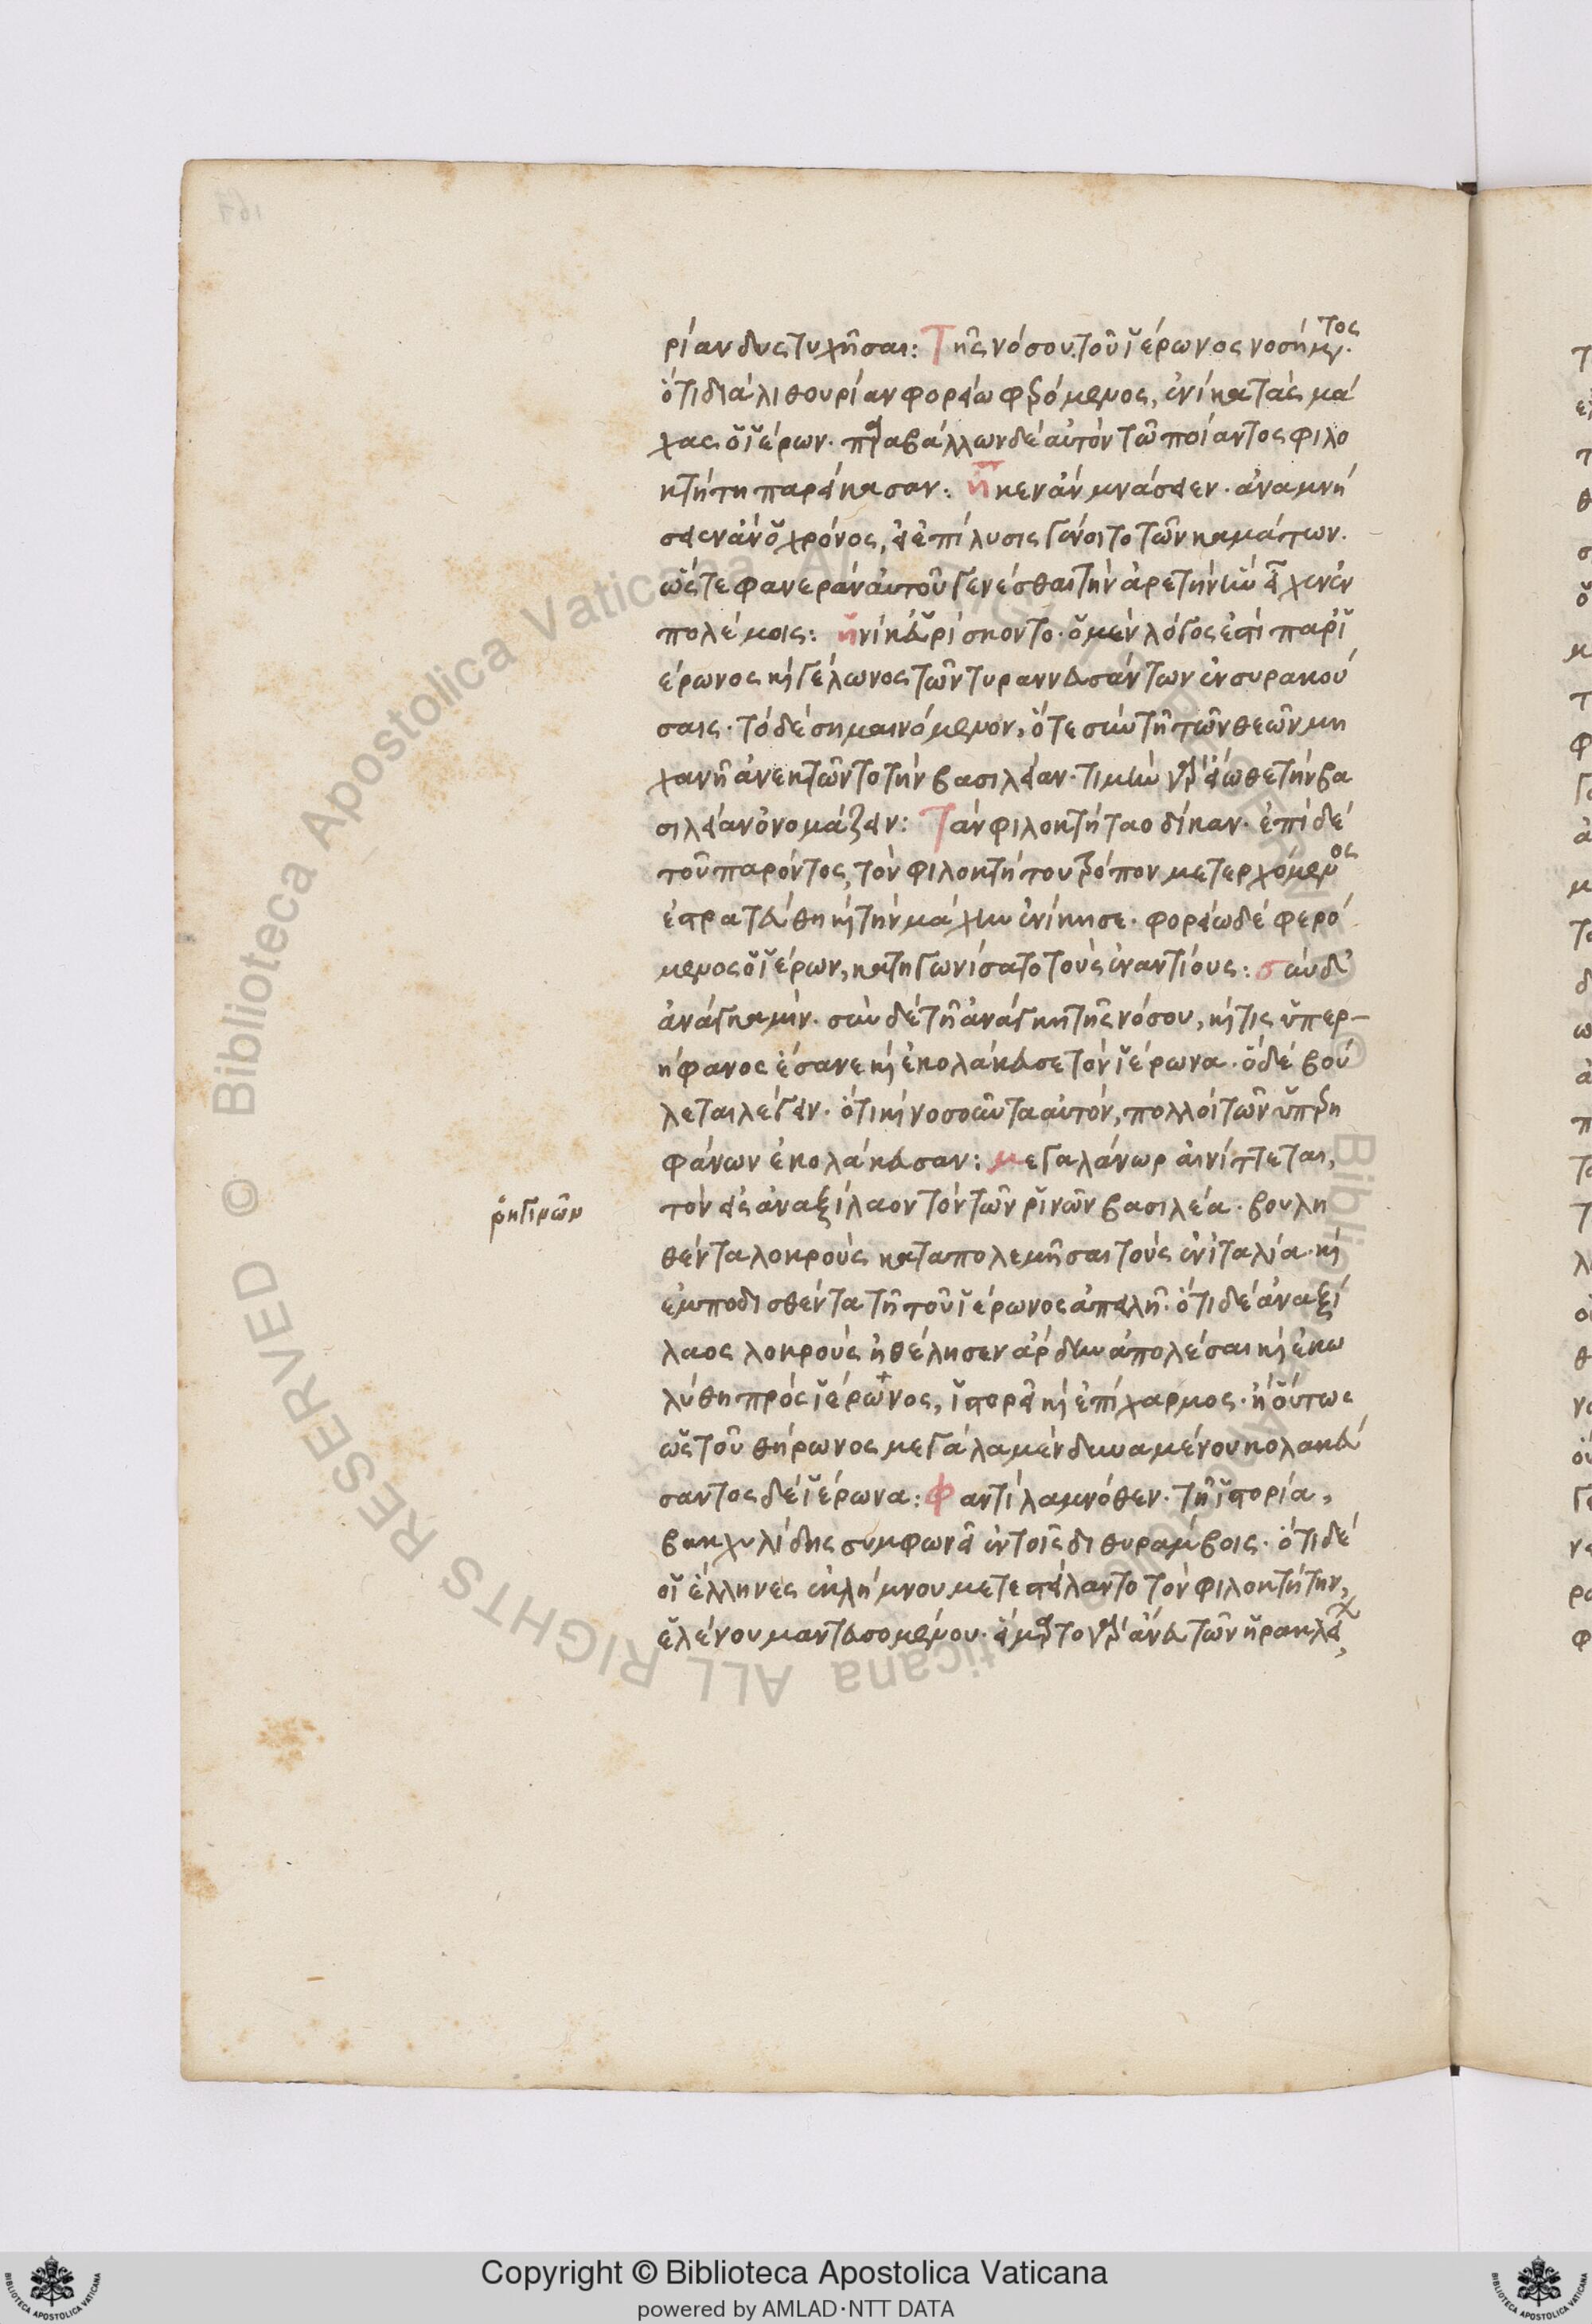 ρίαν δυςτυχῆσαι: Τῆς νόσου. τοῦ ἱέρωνος νοσήματος.
ὅτι διὰ λιθουρίαν φορείω φερόμενος, ἐνίκα τὰς μά
χας ὁ ἱέρων. παραβάλλων δὲ αὐτὸν τῶ ποίαντος φιλο
κτήτη παρείκασαν: ἦ κεν ἀν μνάσειεν. ἀναμνή
σειεν ἀν ὁ χρόνος, εἰ ἐπίλυσις γένοιτο τῶν καμάτων.
ὥςτε φανερὰν αὐτοῦ γενέσθαι τὴν ἀρετὴν ἣν εἶχεν ἐν
πολέμοις: ἡνίκ' εὑρίσκοντο. ὁ μὲν λόγος ἐστὶ παρ' ἱ
έρωνος καὶ γέλωνος τῶν τυραννευσάντων ἐν συρακού
σαις. τὸ δὲ σημαινόμενον, ὅτε σὺν τῆ τῶν θεῶν μη
χανῆ ἀνεκτῶντο τὴν βασιλείαν. τιμὴν γὰρ εἴωθε τὴν βα
σιλείαν ὀνομάζειν: Τὰν φιλοκτήταο δίκαν. ἐπὶ δὲ
τοῦ παρόντος, τὸν φιλοκτήτου τρόπον μετερχόμενος
ἐστρατεύθη καὶ τὴν μάχην ἐνίκησε. φορείω δὲ φερό
μενος ὁ ἱέρων, κατηγωνίσατο τοὺς ἐναντίους: σὺν δ'
ἀνάγκα μιν. σὺν δὲ τῆ ἀνάγκη τῆς νόσου, καί τις ὑπερ-
ήφανος ἔσανε καὶ ἐκολάκευσε τὸν ἱέρωνα. ὁ δὲ βού
λεται λέγειν. ὅτι καὶ νοσοῦντα αὐτὸν, πολλοὶ τῶν ὑπερη
φάνων ἐκολάκευσαν: μεγαλάνωρ αἰνίττεται,
τὸν εἰς ἀναξίλαον τὸν τῶν ῥινῶν βασιλέα. βουλη
ῥηγινῶν
θέντα λοκροὺς καταπολεμῆσαι τοὺς ἐν ἰταλία. καὶ
ἐμποδισθέντα τῆ τοῦ ἱέρωνος ἀπειλῆ. ὅτι δὲ ἀναξί
λαος λοκροὺς ἠθέλησεν ἄρδην ἀπολέσαι καὶ ἐκω
λύθη πρὸς ἱέρωνος, ἱστορεῖ καὶ ἐπίχαρμος. ἢ οὕτως
ὡς τοῦ θήρωνος μεγάλα μὲν δυναμένου κολακεύ
σαντος δὲ ἱέρωνα: φαντὶ λαμνόθεν. τῆ ἱστορία,
βακχυλίδης συμφωνεῖ ἐν τοῖς διθυράμβοις. ὅτι δὲ
οἱ ἕλληνες ἐκ λήμνου μετεστείλαντο τὸν φιλοκτήτην,
ἑλένου μαντευσομένου. εἵμαρτο γὰρ ἄνευ τῶν ἡρακλεί